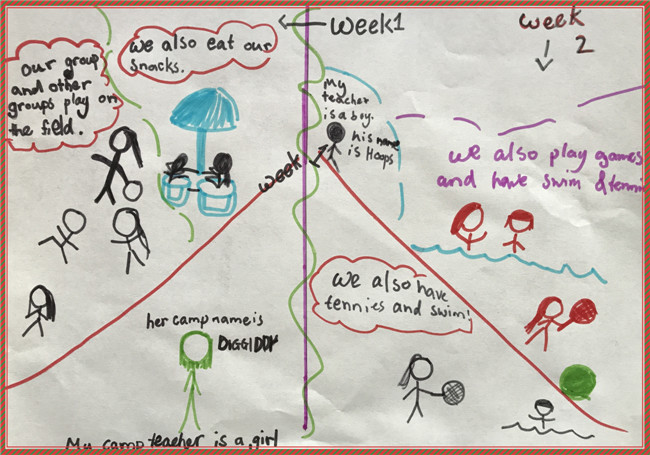 week1
we also eat our
snacks.
our group
and other
groups play on
the field.
her camp name is
DIGGIDDY
My camp teacher is a girl
week
2
week
My
teacher
is a boy.
his name
is Hoops
we also play games
and have swim & tennis
we also have
tennies and swim!